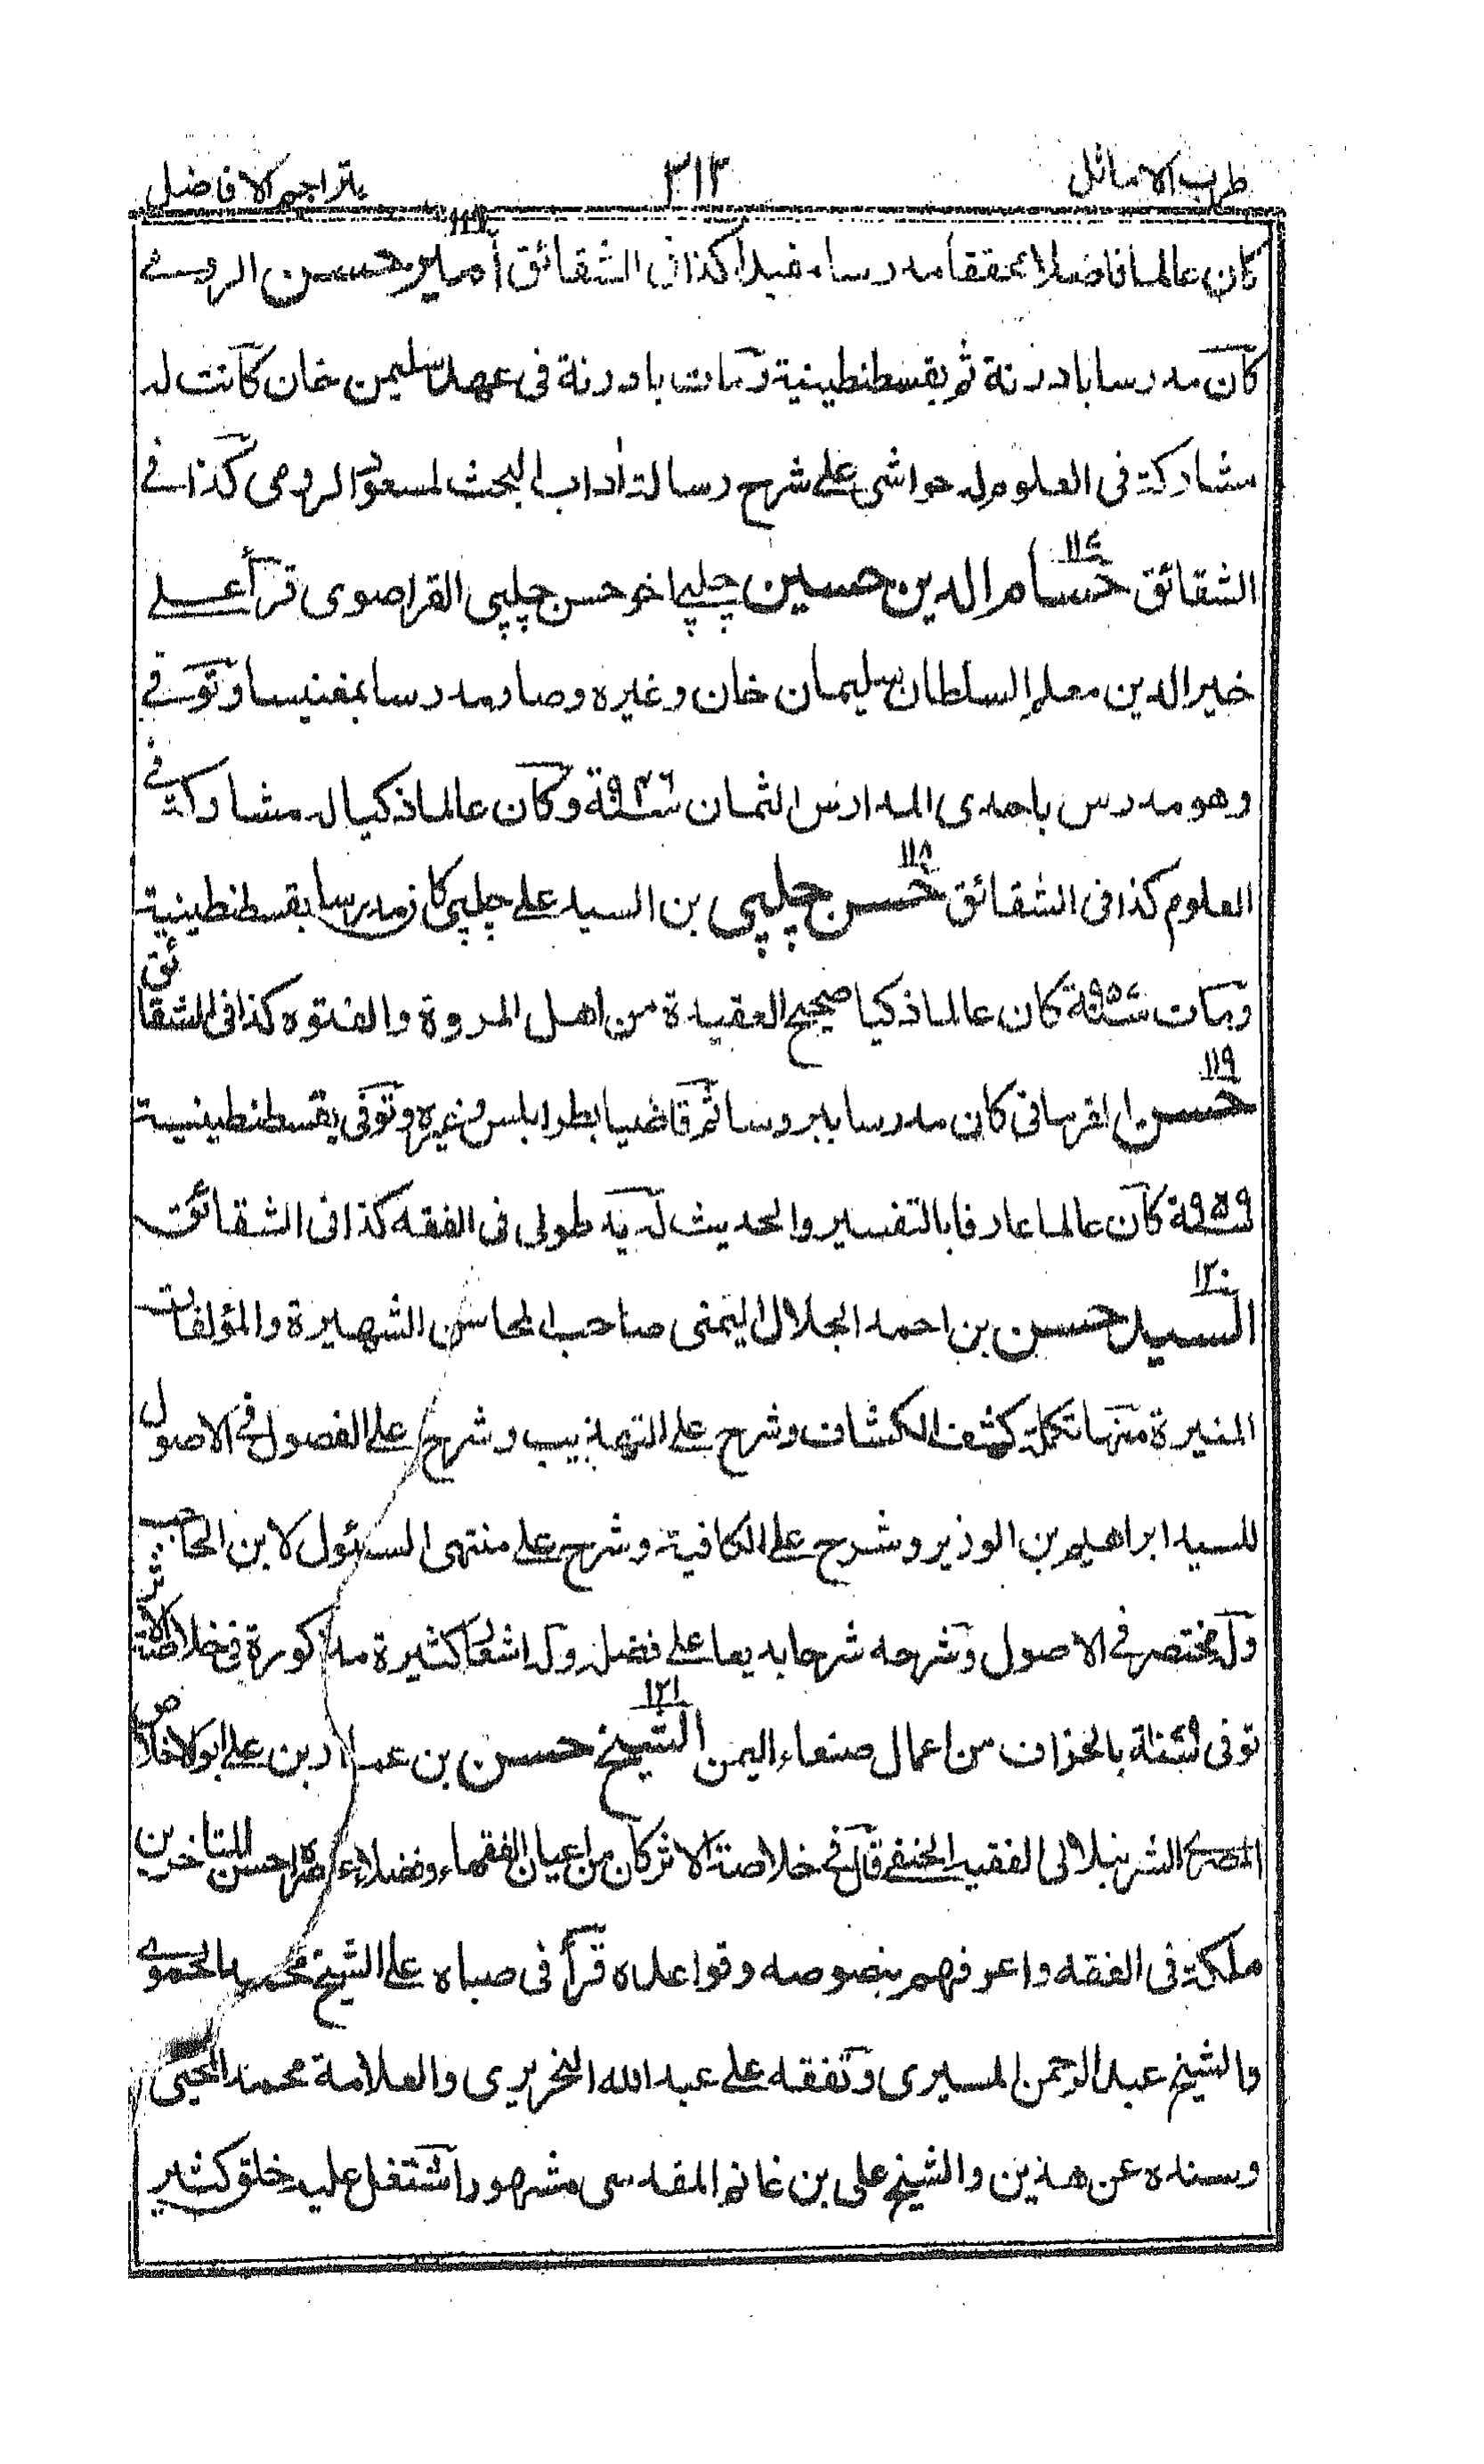 طرب الاماثل ٣١٣ بتراجم الافاضل
كان عالما فاضلا محققا مدرسا مفيدا كذا فى الشقائق امير حسن الرومے
كان مدرسا بادرنة ثم بقسطنطينية ومات بادرنة فى عهد سليمن خان كانت له
مشاركة فى العلوم له حواشى على شرح رسالة اداب البحث لمسعود الرومى كذا فے
١١٧
الشقائق حسام الدين حسين چلپى اخو حسن چلپى القراصوى قرأ علے
خير الدين معلم السلطان سليمان خان وغيره وصار مدرسا بمغنيسا وتوفے
وهو مدرس باحدى المدارس الثمان سنة ٩٣٦ وكان عالما ذكيا له مشاركة فے
١١٨
العلوم كذا فى الشقائق حسن چلپى بن السيد على چلپى كان مدرسا بقسطنطينية
ومات سنة ٩٥٧ كان عالما ذكيا صحيح العقيدة من اهل المروة والفتوه كذا فى الشقائق
١١٩
حسن القرمانى كان مدرسا ببروسا ثم قاضيا بطرابلس وغيره وتوفى بقسطنطينية
سنة ٩٥٩ كان عالما عارفا بالتفسير والحديث له يد طولى فى الفقه كذا فى الشقائق
١٢٠
السيد حسن بن احمد الجلال اليمنى صاحب المحاسن الشهيرة والمؤلفات
المنيرة منها تكملة كشف الكشاف وشرح على التهذيب وشرح على الفصول فے الاصول
للسيد ابراهيم بن الوزير وشرح على الكافية وشرح على منتهى السئول لابن الحاجب
وله مختصر فے الاصول وشرحه شرحا بديعا على فضله وله اشعار كثيرة مذكورة فى خلاصة الاثر
١٢١
توفى بالجراف من اعمال صنعاء اليمن الشيخ حسن بن عمار بن على ابو الاخلاص
المصرى الشرنبلالى الفقيه الحنفے قال فے خلاصة الاثر كان من اعيان الفقهاء وفضلاء عصره احسن المتاخرين
ملكة فى الفقه واعرفهم بنصوصه وقواعده قرأ فى صباه على الشيخ محمد الحموے
والشيخ عبد الرحمن المسيرى وتفقه على عبد الله النحريرى والعلامة محمد المحبى
وسنده عن هذين والشيخ على بن غانم المقدسى مشهور اشتغل عليه خلق كثير